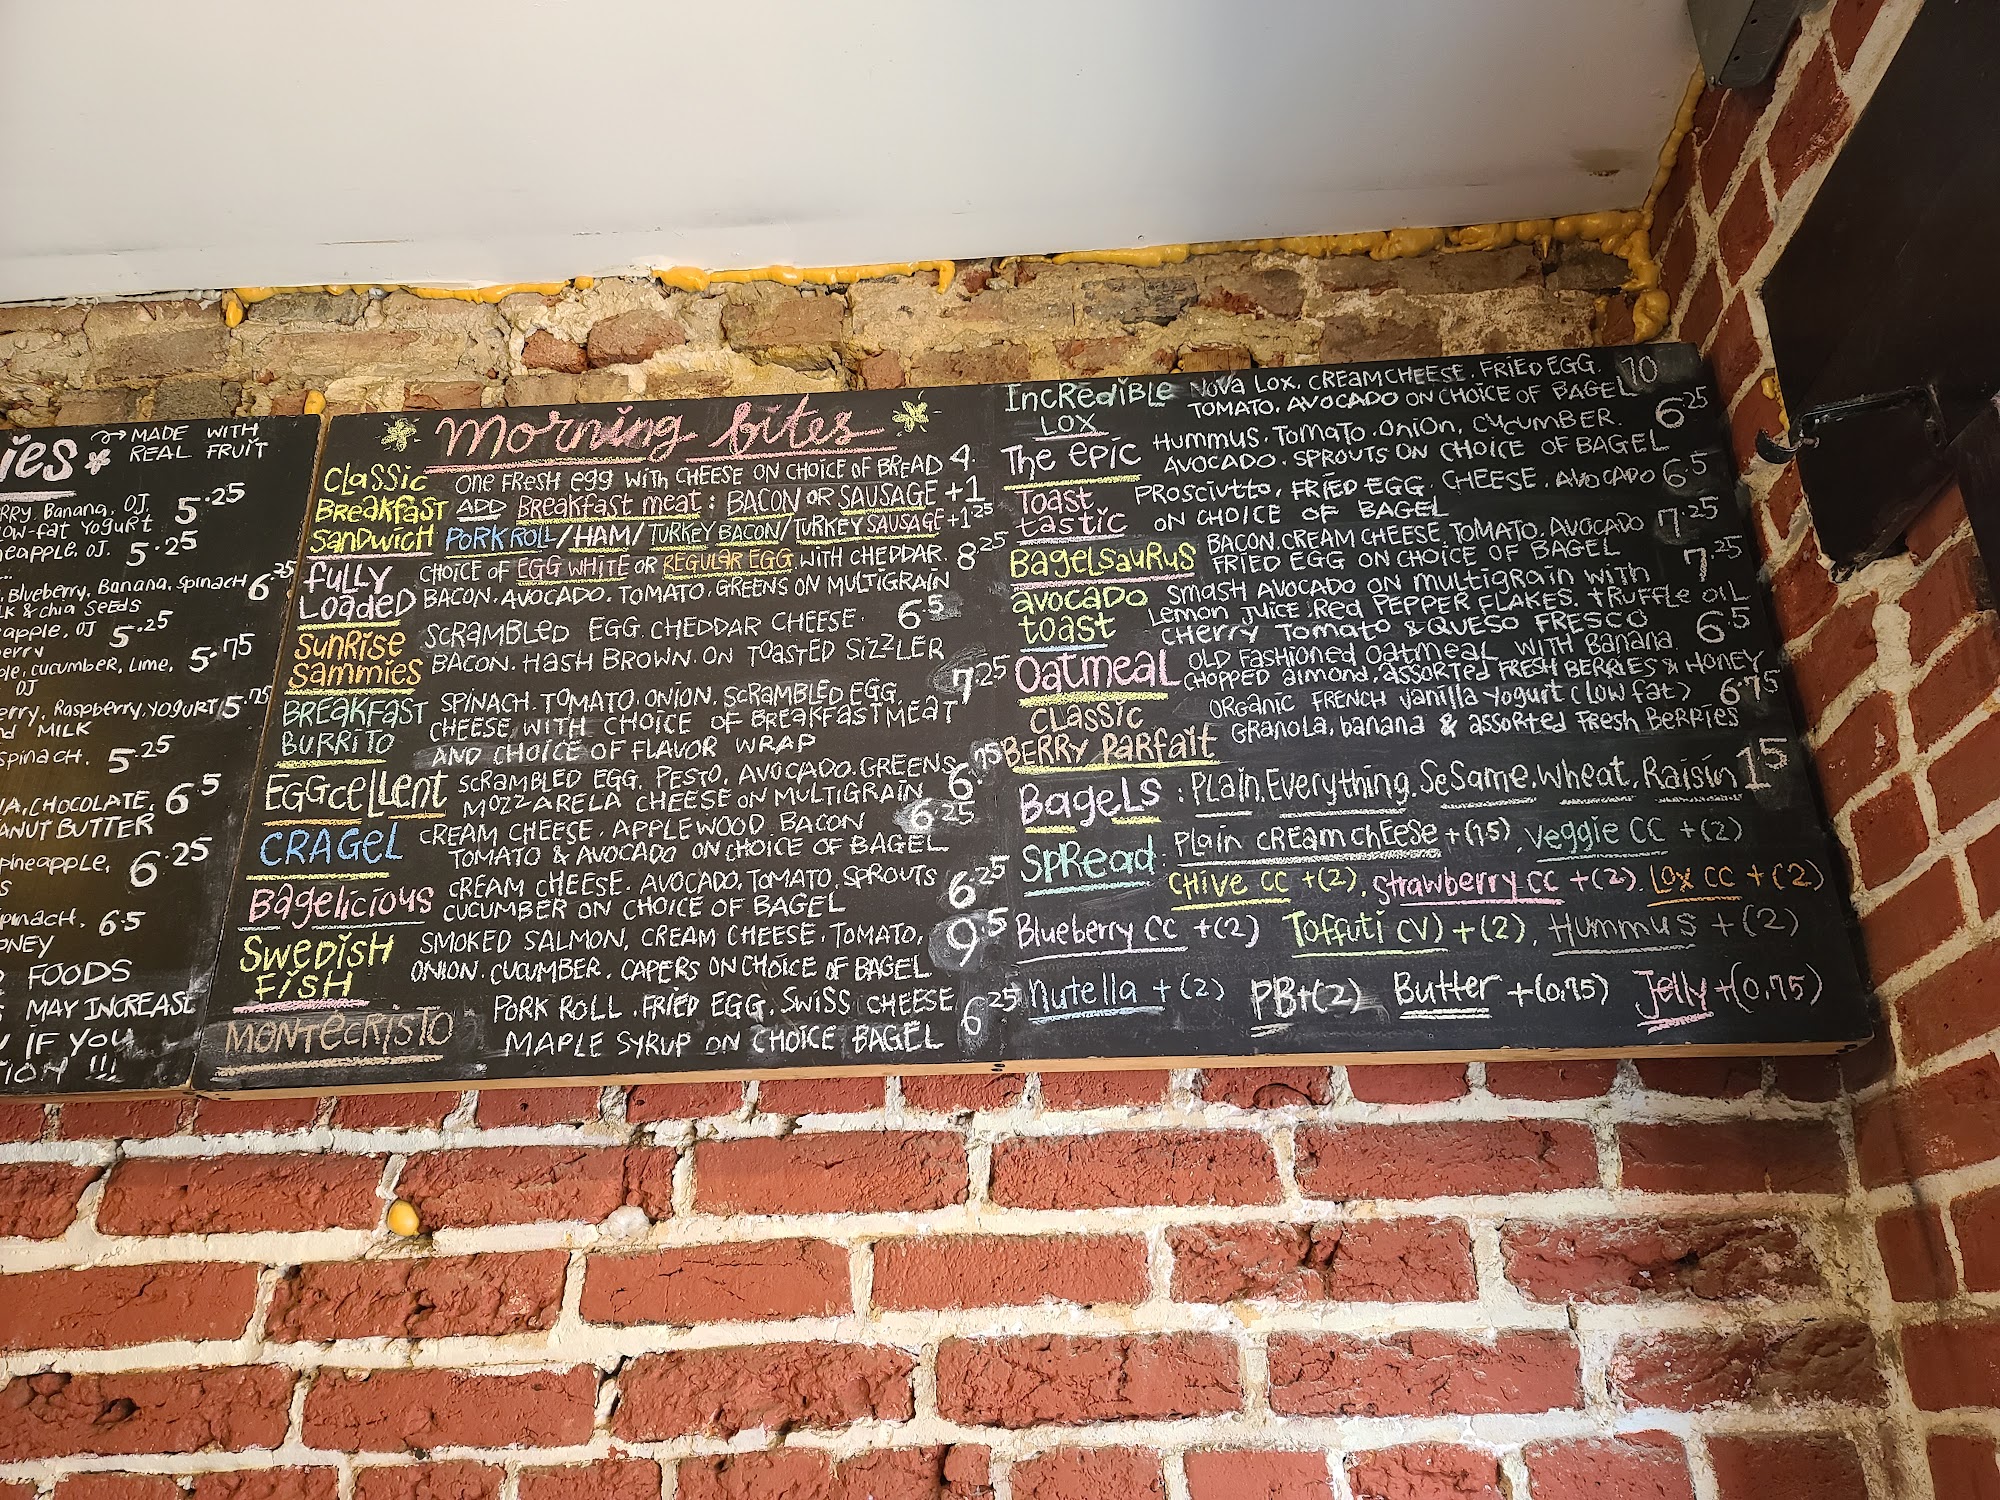 ies MADE WITH
REAL FRUIT
RRY, Banana, OJ, 5.25
low-fat Yogurt
neapple, OJ. 5.25
, Blueberry, Banana, spinach 6.25
LK & chia seeds
apple, OJ 5.25
erry
ple, cucumber, Lime, 5.75
OJ
erry, Raspberry, YOGURT 5.75
nd MILK
spinach, 5.25
A, CHOCOLATE, 6.5
ANUT BUTTER
pineapple, 6.25
s
spinach, 6.5
ONEY
FOODS
MAY INCREASE
IF YOU
TION !!!
Morning bites
Classic Breakfast Sandwich
One Fresh egg with CHEESE ON CHOICE OF BREAD 4.
ADD Breakfast meat: BACON OR SAUSAGE +1
PORK ROLL/HAM/TURKEY BACON/TURKEY SAUSAGE +1.25
Fully Loaded
CHOICE OF EGG WHITE OR REGULAR EGG WITH CHEDDAR. 8.25
BACON. AVOCADO. TOMATO. GREENS ON MULTIGRAIN
Sunrise Sammies
SCRAMBLED EGG. CHEDDAR CHEESE. 6.5
BACON. HASH BROWN. ON TOASTED SIZZLER
Breakfast Burrito
SPINACH. TOMATO. ONION, SCRAMBLED EGG, 7.25
CHEESE, WITH CHOICE OF BREAKFAST MEAT
AND CHOICE OF FLAVOR WRAP
EGGcellent
SCRAMBLED EGG, PESTO, AVOCADO. GREENS 6.75
MOZZARELA CHEESE ON MULTIGRAIN
CRAGEL
CREAM CHEESE. APPLEWOOD BACON 6.25
TOMATO & AVOCADO ON CHOICE OF BAGEL
Bagelicious
CREAM CHEESE. AVOCADO, TOMATO, SPROUTS 6.25
CUCUMBER ON CHOICE OF BAGEL
Swedish Fish
SMOKED SALMON, CREAM CHEESE. TOMATO, 9.5
ONION. CUCUMBER. CAPERS ON CHOICE OF BAGEL
MONTECRISTO
PORK ROLL. FRIED EGG. SWISS CHEESE 6.25
MAPLE SYRUP ON CHOICE BAGEL
Incredible LOX
NOVA LOX. CREAMCHEESE. FRIED EGG. 10
TOMATO. AVOCADO ON CHOICE OF BAGEL
The epic
HUMMUS. TOMATO. ONION, CUCUMBER. 6.25
AVOCADO. SPROUTS ON CHOICE OF BAGEL
Toast tastic
PROSCIUTTO, FRIED EGG. CHEESE. AVOCADO 6.5
ON CHOICE OF BAGEL
Bagelsaurus
BACON, CREAM CHEESE, TOMATO, AVOCADO 7.25
FRIED EGG ON CHOICE OF BAGEL
avocado toast
SMASH AVOCADO ON multigrain with 7.25
Lemon Juice. Red PEPPER FLAKES. truffle OIL
CHERRY TOMATO & QUESO FRESCO
Oatmeal
OLD FASHIONED Oatmeal WITH Banana. 6.5
CHOPPED almond, assorted FRESH BERRIES & HONEY
Classic Berry Parfait
ORGANIC FRENCH vanilla Yogurt (low fat) 6.75
GRANOLA, banana & assorted Fresh Berries
Bagels: Plain, Everything, Sesame, Wheat, Raisin 1.5
Spread: Plain cream cheese +(1.5), Veggie CC +(2)
Chive CC +(2), Strawberry CC +(2). Lox CC +(2)
Blueberry CC +(2) Toffuti (V) +(2), Hummus +(2)
Nutella +(2) PB+(2) Butter +(0.75) Jelly +(0.75)